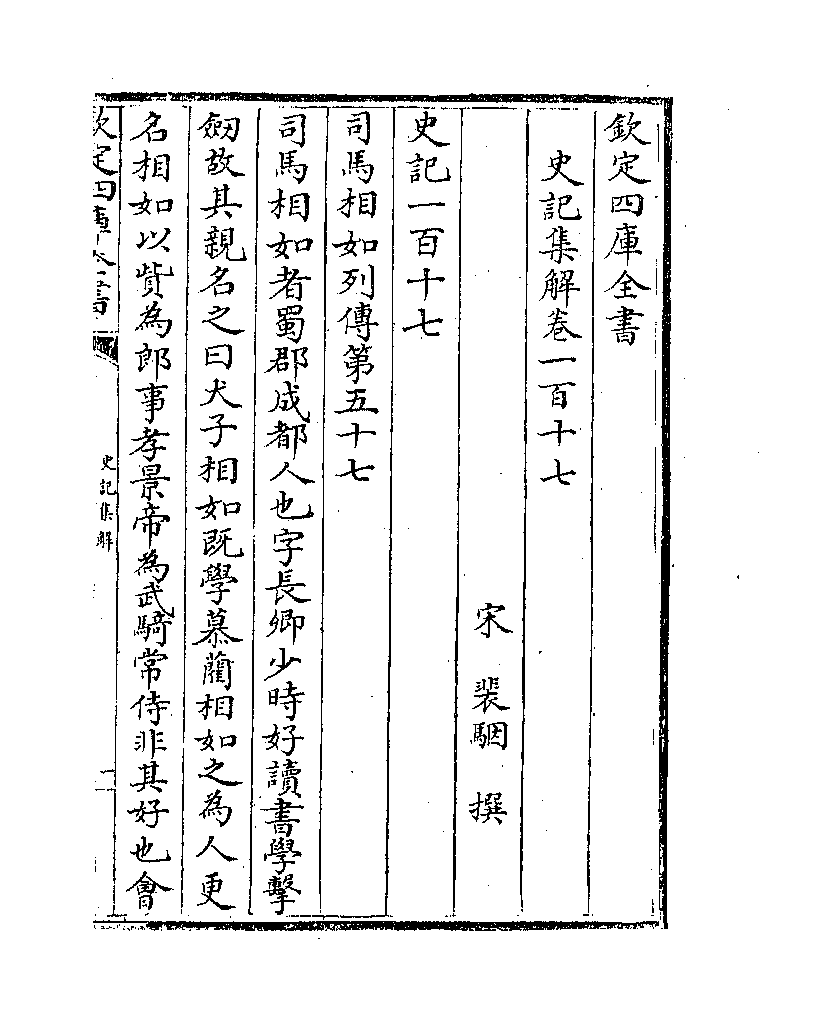 欽定四庫全書
史記集解卷一百十七
宋 裴駰 撰
史記一百十七
司馬相如列傳第五十七
司馬相如者蜀郡成都人也字長卿少時好讀書學擊
劒故其親名之曰犬子相如既學慕藺相如之為人更
名相如以貲為郎事孝景帝為武騎常侍非其好也會
欽定四庫全書
史記集解